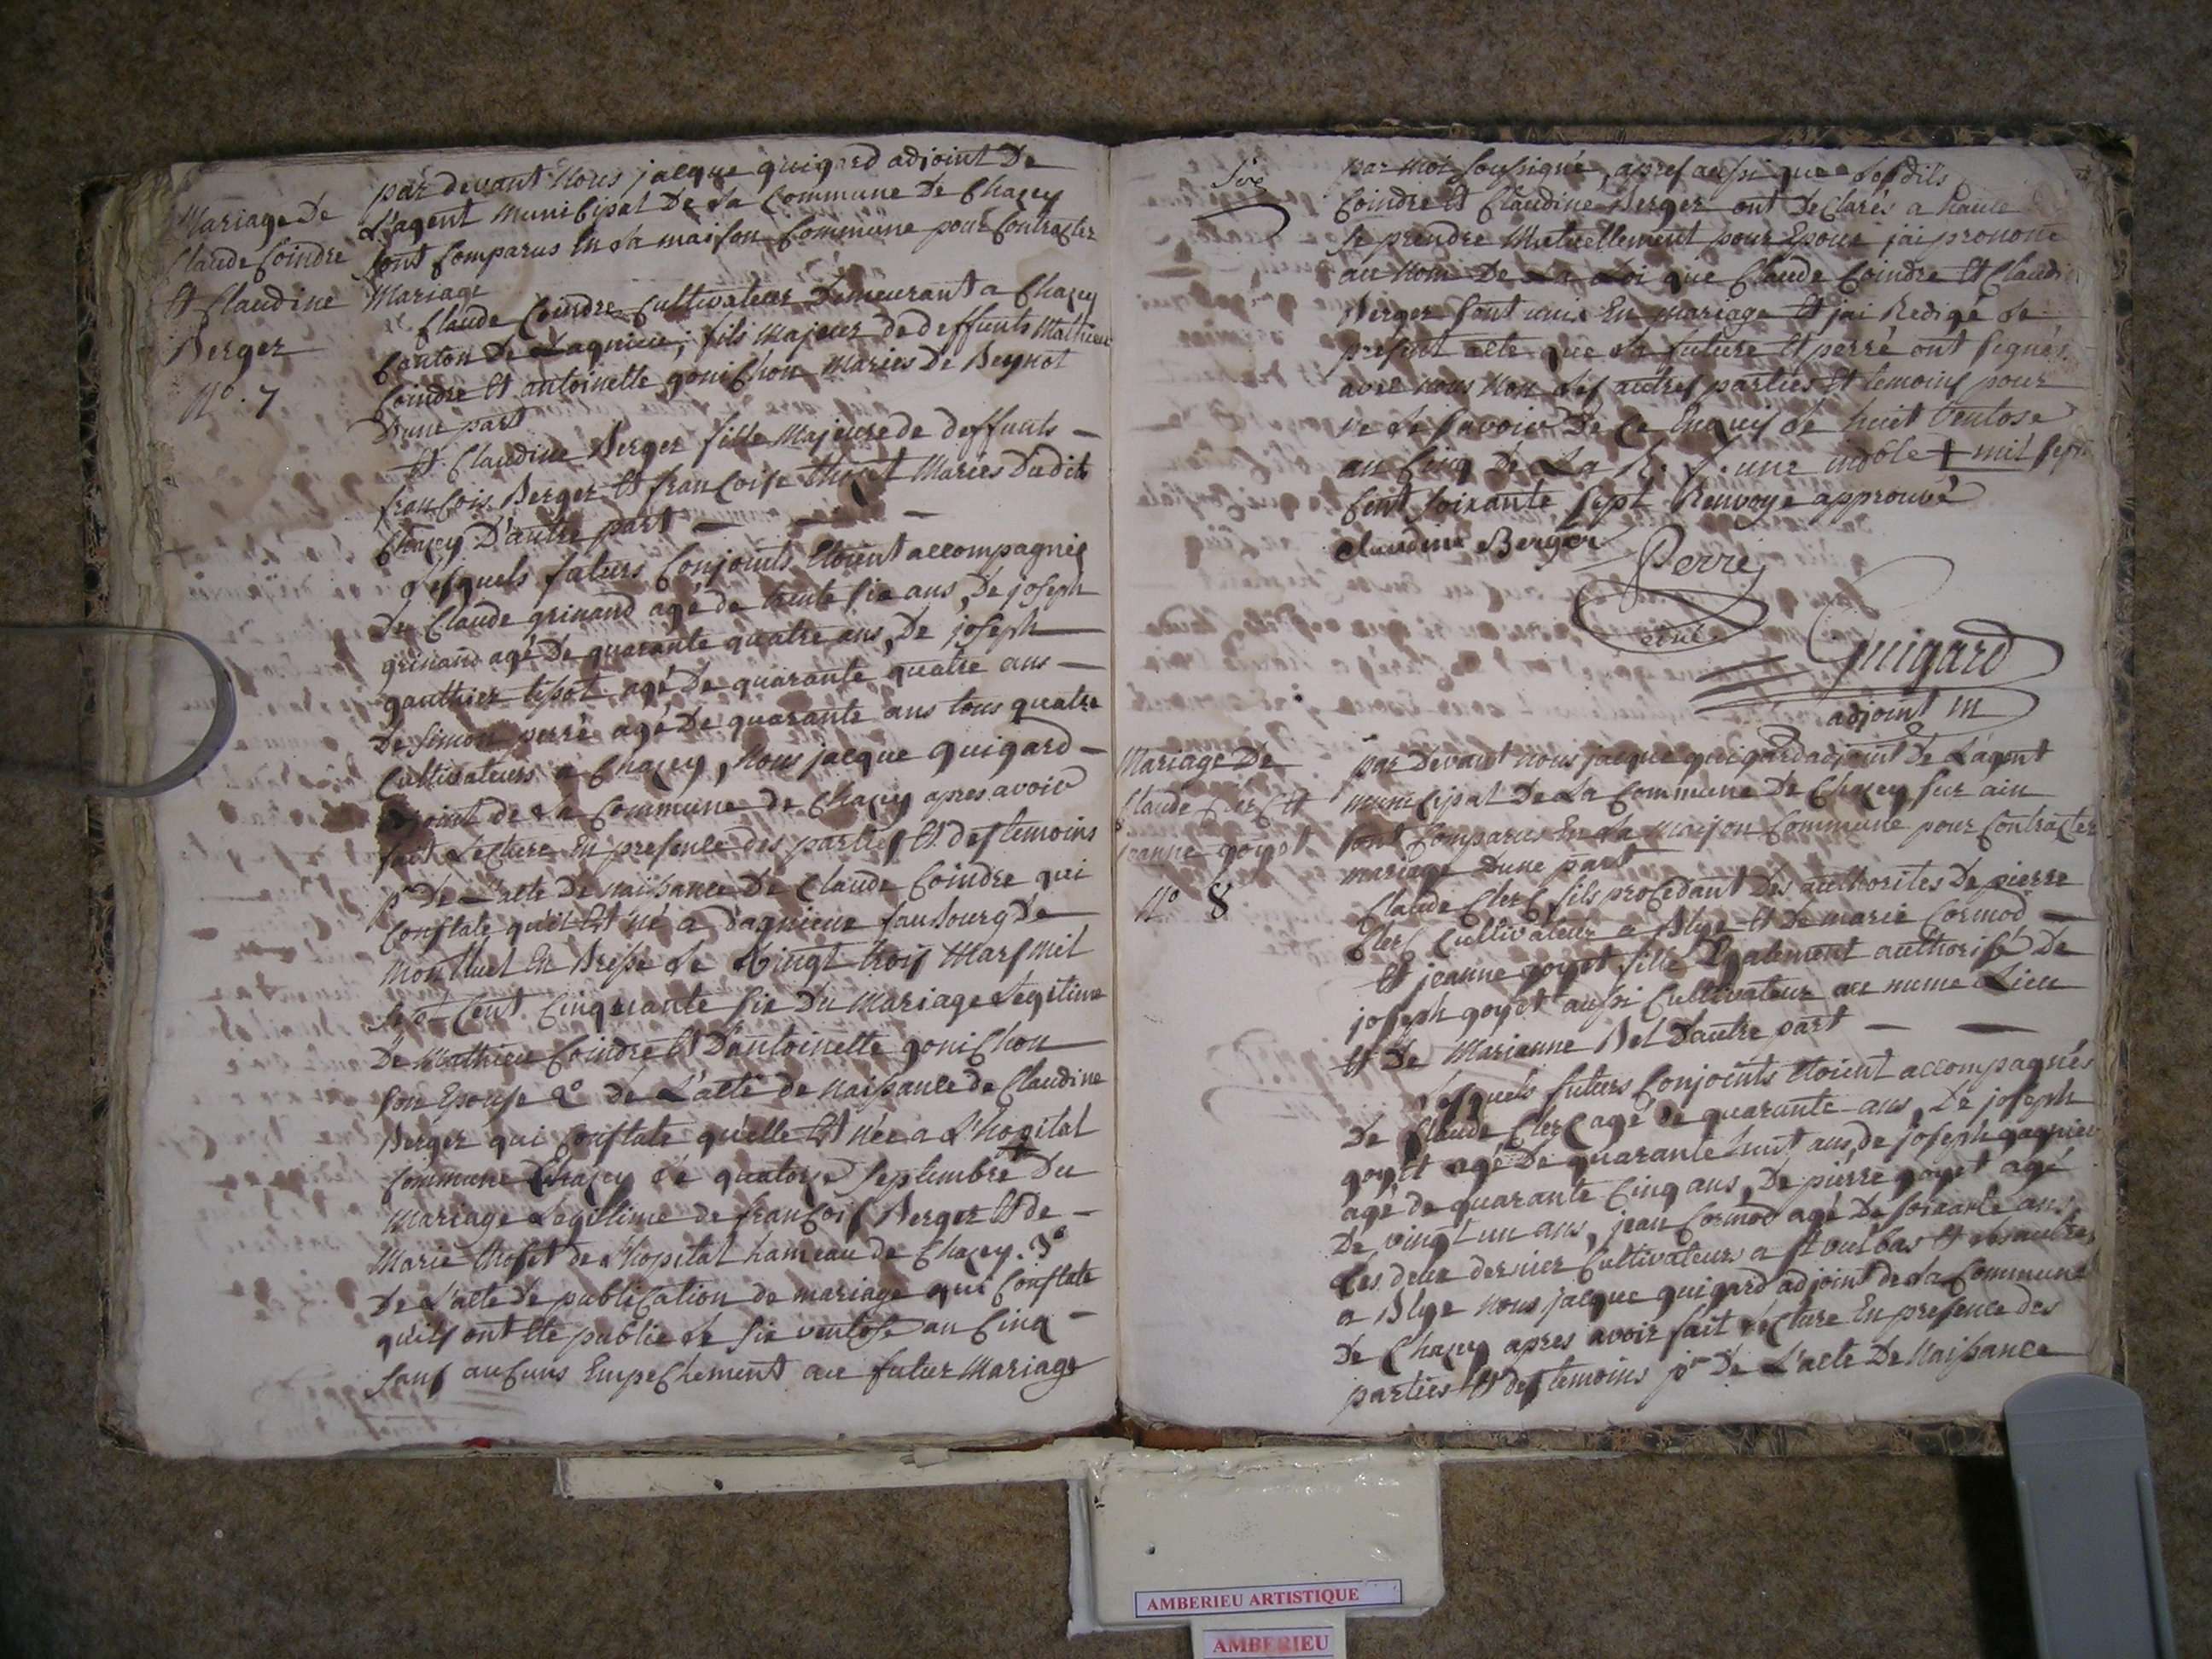 Mariage De
Claude Coindre
Et Claudine
Berger
No. 7
par devant Nous jacque guigard adjoint De
L'agent Municipal De La Commune De Chazey
sont Comparus En La maison Commune pour Contracter
Mariage
Claude Coindre Cultivateur Demeurant a Chazey
Canton De Lagnieu, fils Majeur de deffunts Mathieu
Coindre Et antoinette gonichon Mariés De Beynot
D'une part
Et Claudine Berger fille Majeure de deffunts
francois Berger Et francoise Mariés Dudit
Chazey D'autre part
Lesquels futurs Conjoints Etoient accompagnés
De Claude grinand agé de trente six ans, De joseph
grinand agé De quarante quatre ans, De joseph
gauthier agé De quarante quatre ans
De Simon perré agé De quarante ans tous quatre
Cultivateurs a Chazey, Nous jacque guigard
adjoint de La Commune de Chazey apres avoir
fait Lecture En presence des parties Et des temoins
1o De L'acte De naissance De Claude Coindre qui
Constate qu'il Est né a dagnieux fausbourg De
Montluel En Bresse Le Vingt trois Mars Mil
Sept Cent Cinquante Six Du Mariage Legitime
De Mathieu Coindre Et D'antoinette gonichon
Son Epouse 2o de L'acte de Naissance de Claudine
Berger qui Constate qu'elle Est Née a L'hopital
Commune Chazey Le quatorze Septembre + Du
Mariage Legitime de francois Berger Et de
Marie de L'hopital hameau de Chazey. 3o
De L'acte De publication de mariage qui Constate
qu'ils ont Eté publié Le Six ventose an Cinq
Sans aucuns Empechement au futur Mariage
par moi soussigné, apres aussi que Lesdits
Coindre Et Claudine Berger ont Declarés a haute
Se prendre Mutuellement pour Epoux jai
au Nom De La Loi que Claude Coindre Et
Berger sont unis En mariage Et jai Redigé Le
present acte que La future Et perré ont signés
avec nous Non Les autres parties Et temoins pour
ne Le savoir De Ce Enquis Le huit Ventose
an Cinq De La R. f. une + mil sept
Cent soixante sept Renvoye approuvé
Claudine Berger
Perre
Guigard
adjoint m
Mariage De
Claude Clerc Et
jeanne goyet
No 8
par Devant nous jacque guigard adjoint De L'agent
municipal De La Commune De Chazey sur ain
sont Comparus En La Maison Commune pour Contracter
mariage D'une part
Claude Clerc fils procedant Des authorités De pierre
Clerc Cultivateur a Blye Et De marie Cormod
Et jeanne goyet fille Egalement authorisé De
joseph goyet aussi Cultivateur au meme Lieu
Et De Marianne Bel D'autre part
Lesquels futurs Conjoints Etoient accompagnés
De Claude Clerc agé de quarante ans, De joseph
goyet agé De quarante huit ans, de joseph gagnieu
agé de quarante Cinq ans, De pierre goyet agé
De vingt un ans, jean Cormod agé De soixante ans,
Les deux dernier Cultivateurs a St vulbas Et Les autres
a Blye Nous jacque guigard adjoint de La Commune
De Chazey apres avoir fait Lecture En presence des
parties Et des temoins 1o De L'acte De Naissance
AMBERIEU ARTISTIQUE
AMBERIEU